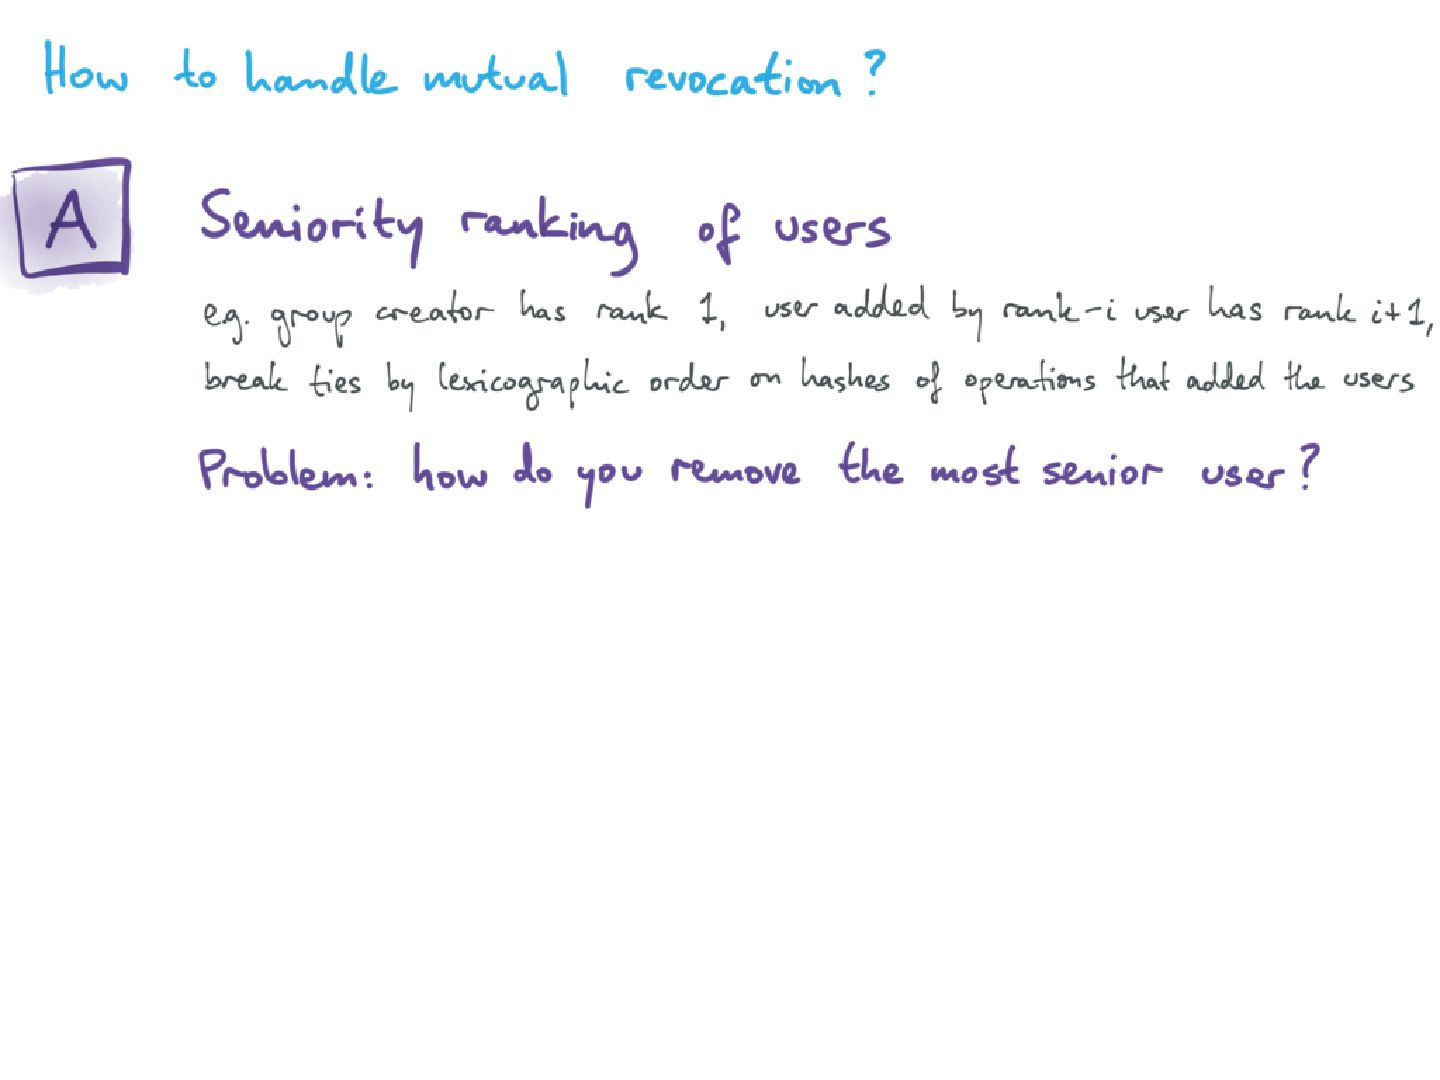 How to handle mutual revocation?
A
Seniority ranking of users
e.g. group creator has rank 1, user added by rank-i user has rank i+1,
break ties by lexicographic order on hashes of operations that added the users
Problem: how do you remove the most senior user?